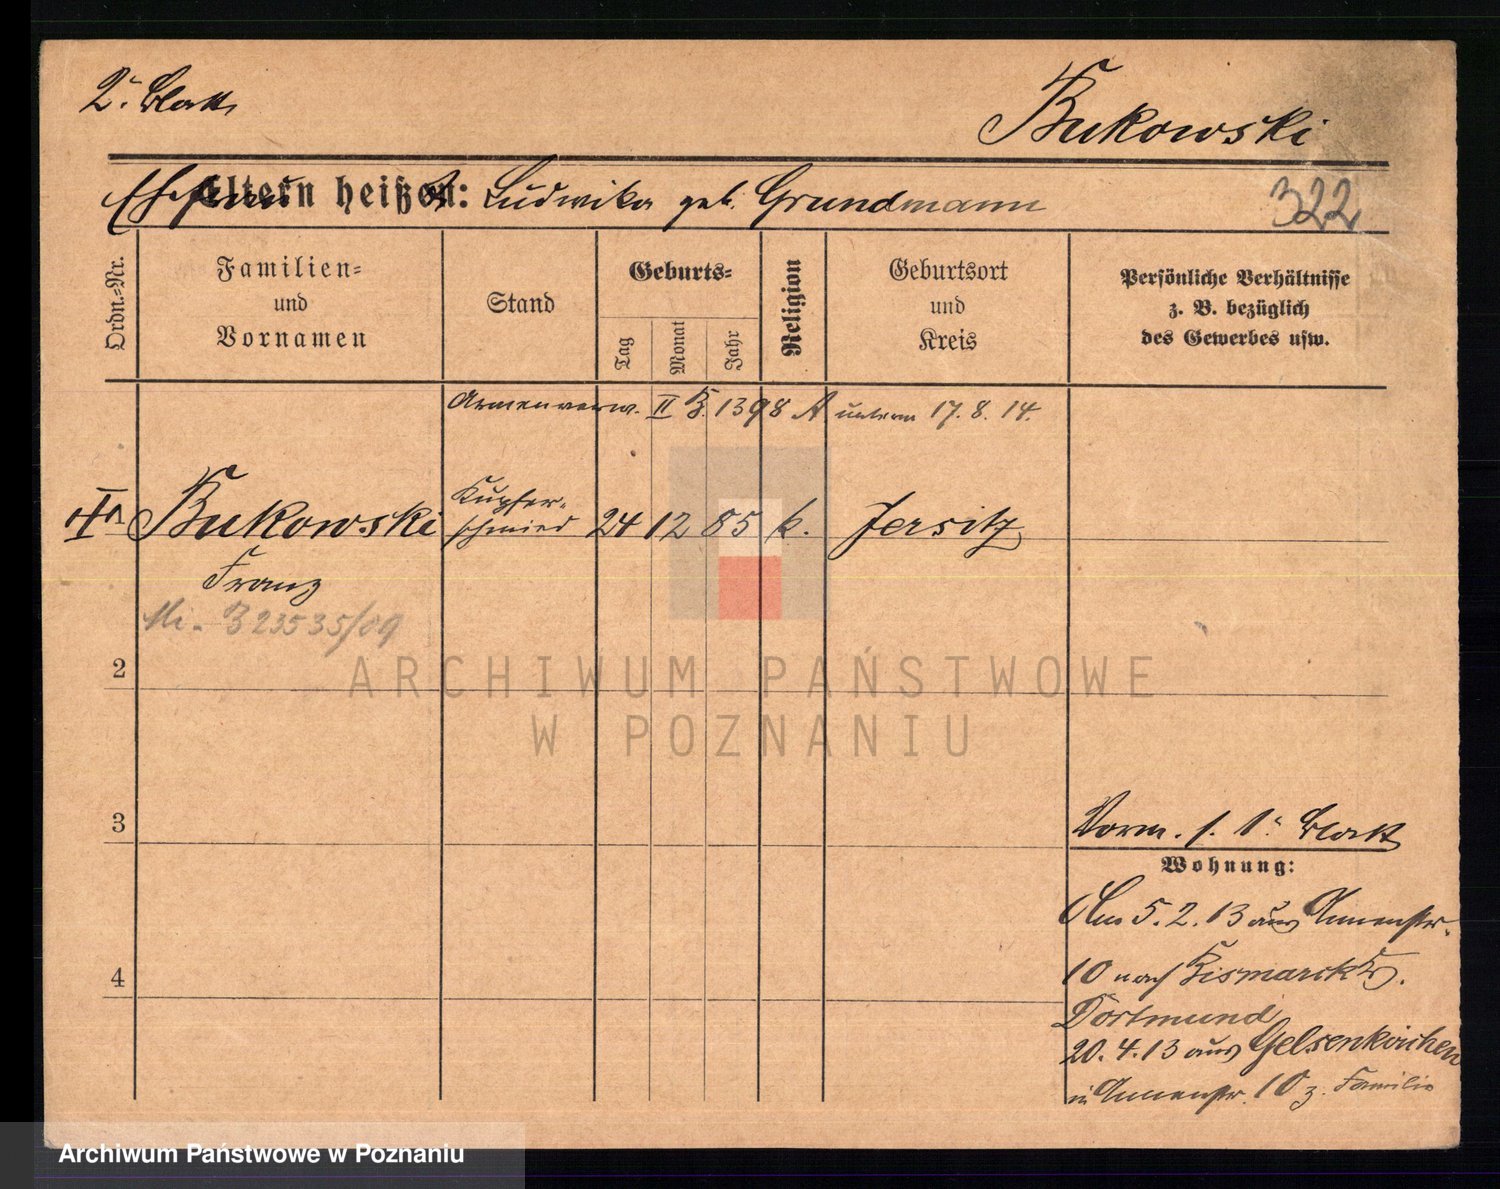 2. Blatt
Bukowski
Ehefrau Ludwika geb. Grundmann
Eltern heißen:
322
Ordn.-Nr.
Familien-
und
Vornamen
Stand
Geburts-
Tag
Monat
Jahr
Religion
Geburtsort
und
Kreis
Persönliche Verhältnisse
z. B. bezüglich
des Gewerbes usw.
Armenverw. II B. 1398 A unterm 17. 8. 14.
Bukowski
Franz
Kupfer-
schmied
24 12 85 k. Jersitz
Mi. B 23535/09
2
3
4
ARCHIWUM PAŃSTWOWE
W POZNANIU
Vorm. s. 1. Blatt
Wohnung:
Am 5. 2. 13 aus Annenstr.
10 nach Bismarck
Dortmund
20. 4. 13 aus Gelsenkirchen
in Annenstr. 10 z. Familie
Archiwum Państwowe w Poznaniu